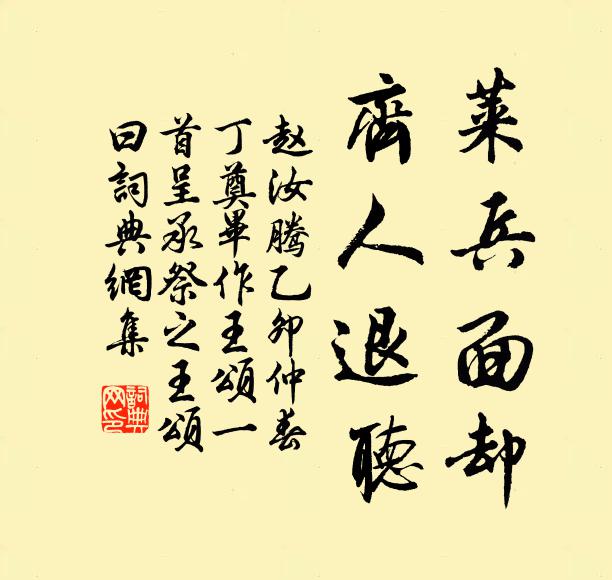 萊兵面却
齊人退聽
赵汝腾乙卯仲春
丁奠畢作王頌一
首呈承祭之王頌
曰詞典網集
詞典网印